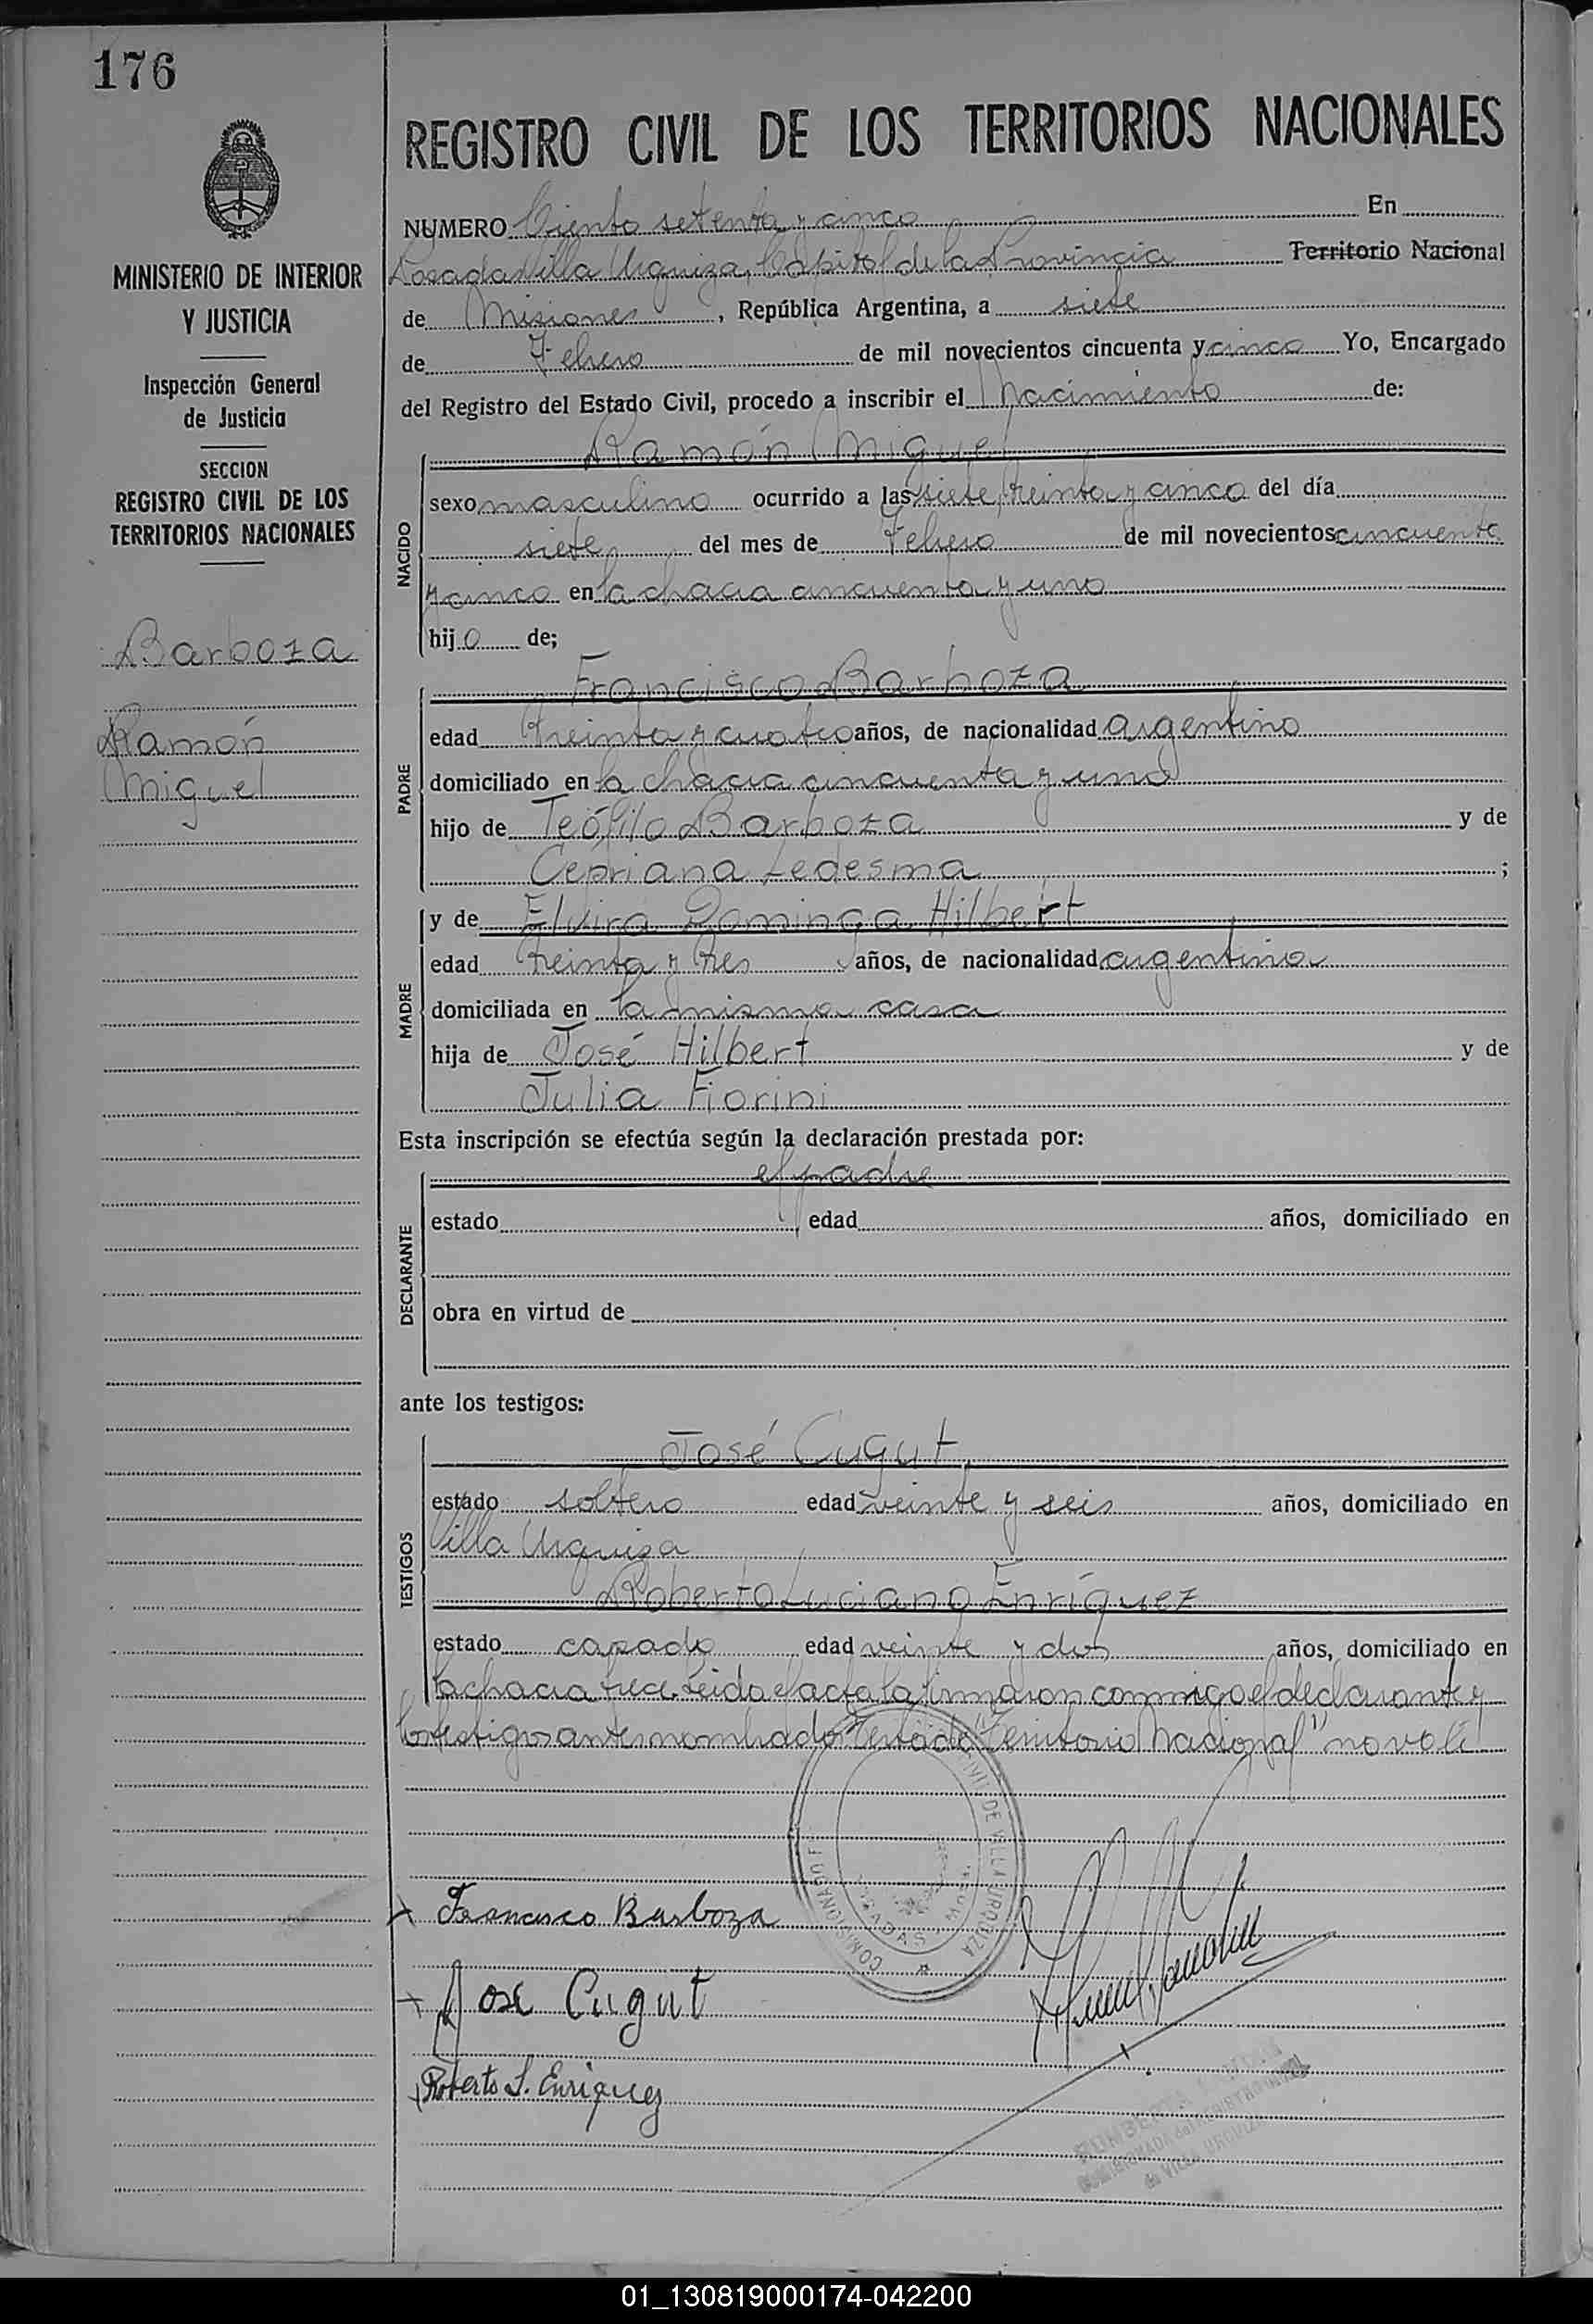 176
REGISTRO CIVIL DE LOS TERRITORIOS NACIONALES
MINISTERIO DE INTERIOR
Y JUSTICIA
Inspección General
de Justicia
SECCION
REGISTRO CIVIL DE LOS
TERRITORIOS NACIONALES
Barboza
Ramón
Miguel
NUMERO Ciento setenta y cinco En
Posadas Villa Urquiza, Capital de la Provincia Territorio Nacional
de Misiones, República Argentina, a siete
de Febrero de mil novecientos cincuenta y cinco Yo, Encargado
del Registro del Estado Civil, procedo a inscribir el Nacimiento de:
NACIDO
Ramón Miguel
sexo masculino ocurrido a las siete, treinta y cinco del día
siete del mes de Febrero de mil novecientos cincuenta
y cinco en la chacra cincuenta y uno
hijo de;
PADRE
Francisco Barboza
edad Treinta y cuatro años, de nacionalidad argentino
domiciliado en la chacra cincuenta y uno
hijo de Teófilo Barboza y de
Cepriana Ledesma ;
MADRE
y de Elvira Dominga Hilbert
edad Treinta y tres años, de nacionalidad argentina
domiciliada en la misma casa
hija de José Hilbert y de
Julia Fiorini
Esta inscripción se efectúa según la declaración prestada por:
DECLARANTE
el padre
estado edad años, domiciliado en
obra en virtud de
ante los testigos:
TESTIGOS
José Cugut
estado soltero edad veinte y seis años, domiciliado en
Villa Urquiza
Roberto Luciano Enríquez
estado casado edad veinte y dos años, domiciliado en
la chacra trece. Leida el acta la firmaron conmigo el declarante y
los testigos antes nombrados. Testado "Territorio Nacional" no vale
CIVIL DE VILLA URQUIZA
POSADAS
Francisco Barboza
Jose Cugut
Roberto L. Enriquez
de VILLA URQUIZA
01_130819000174-042200